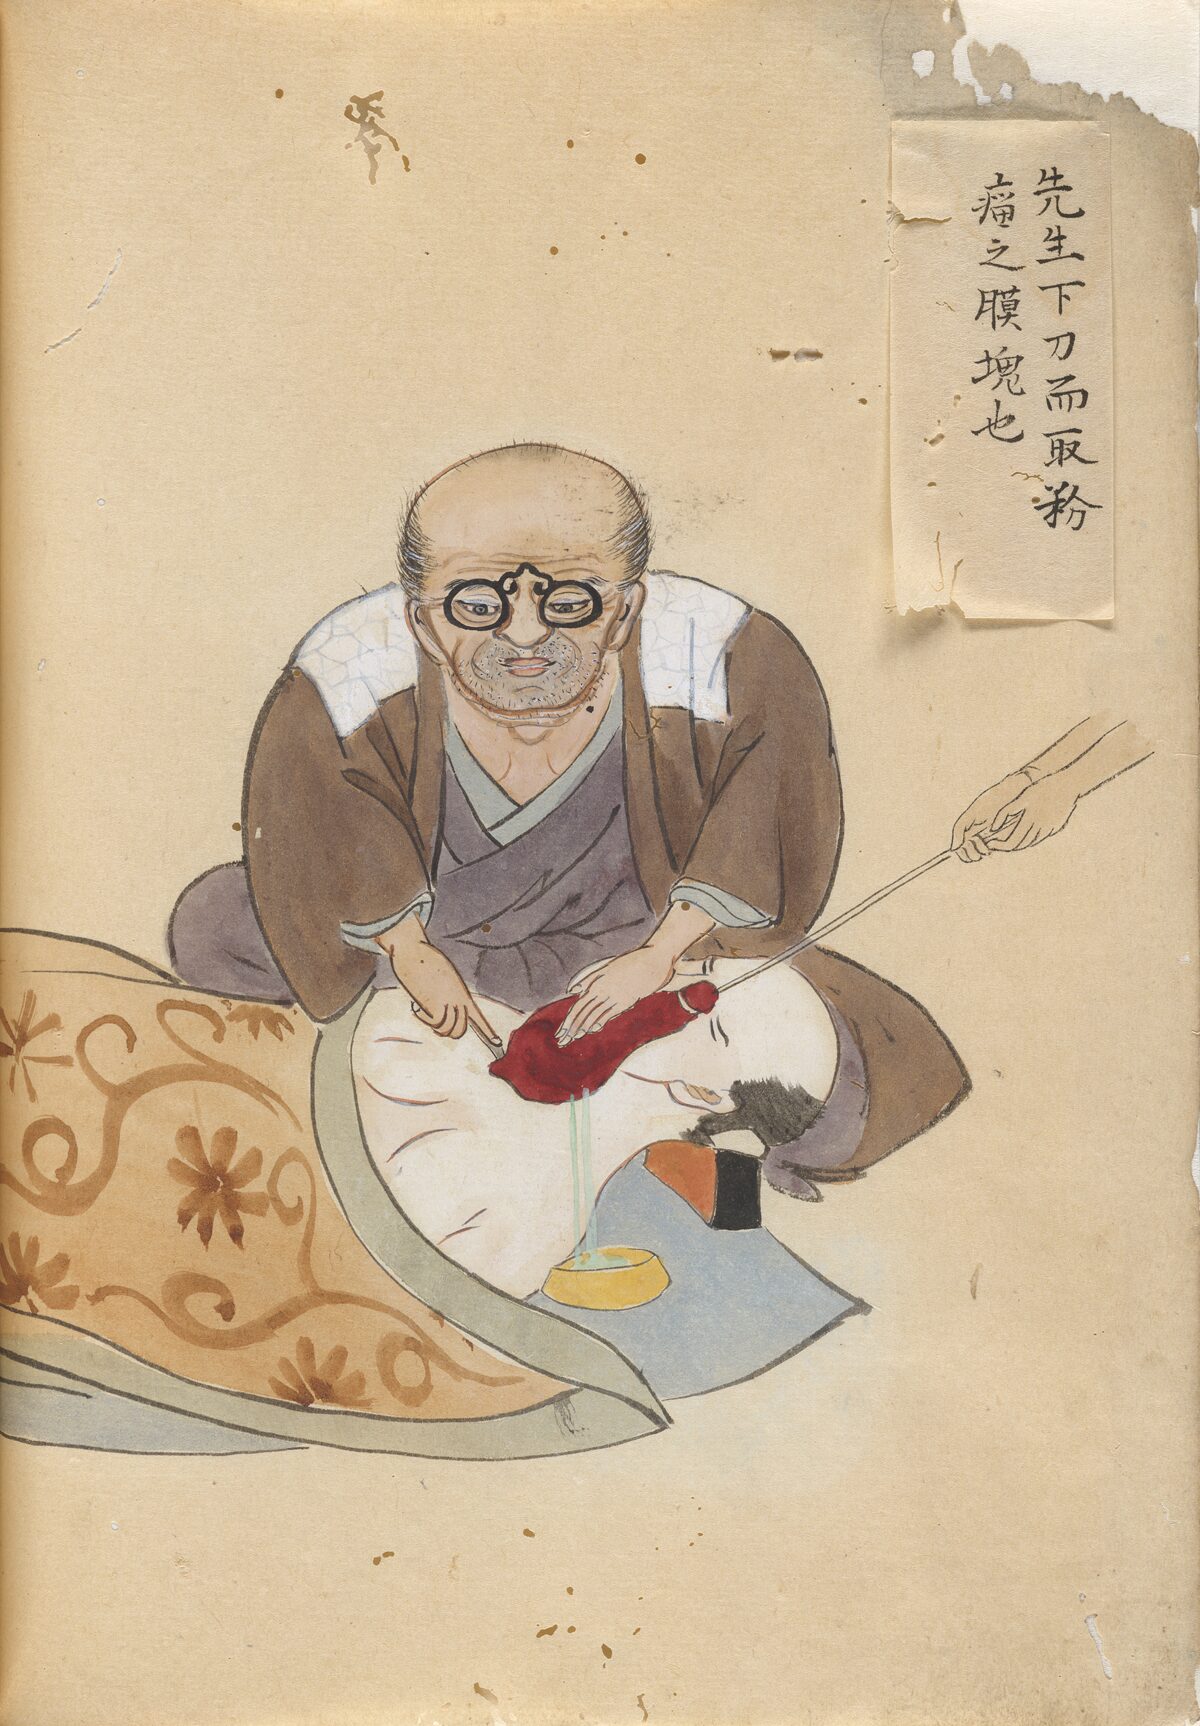 先生下刀而取粉
瘤之膜塊也